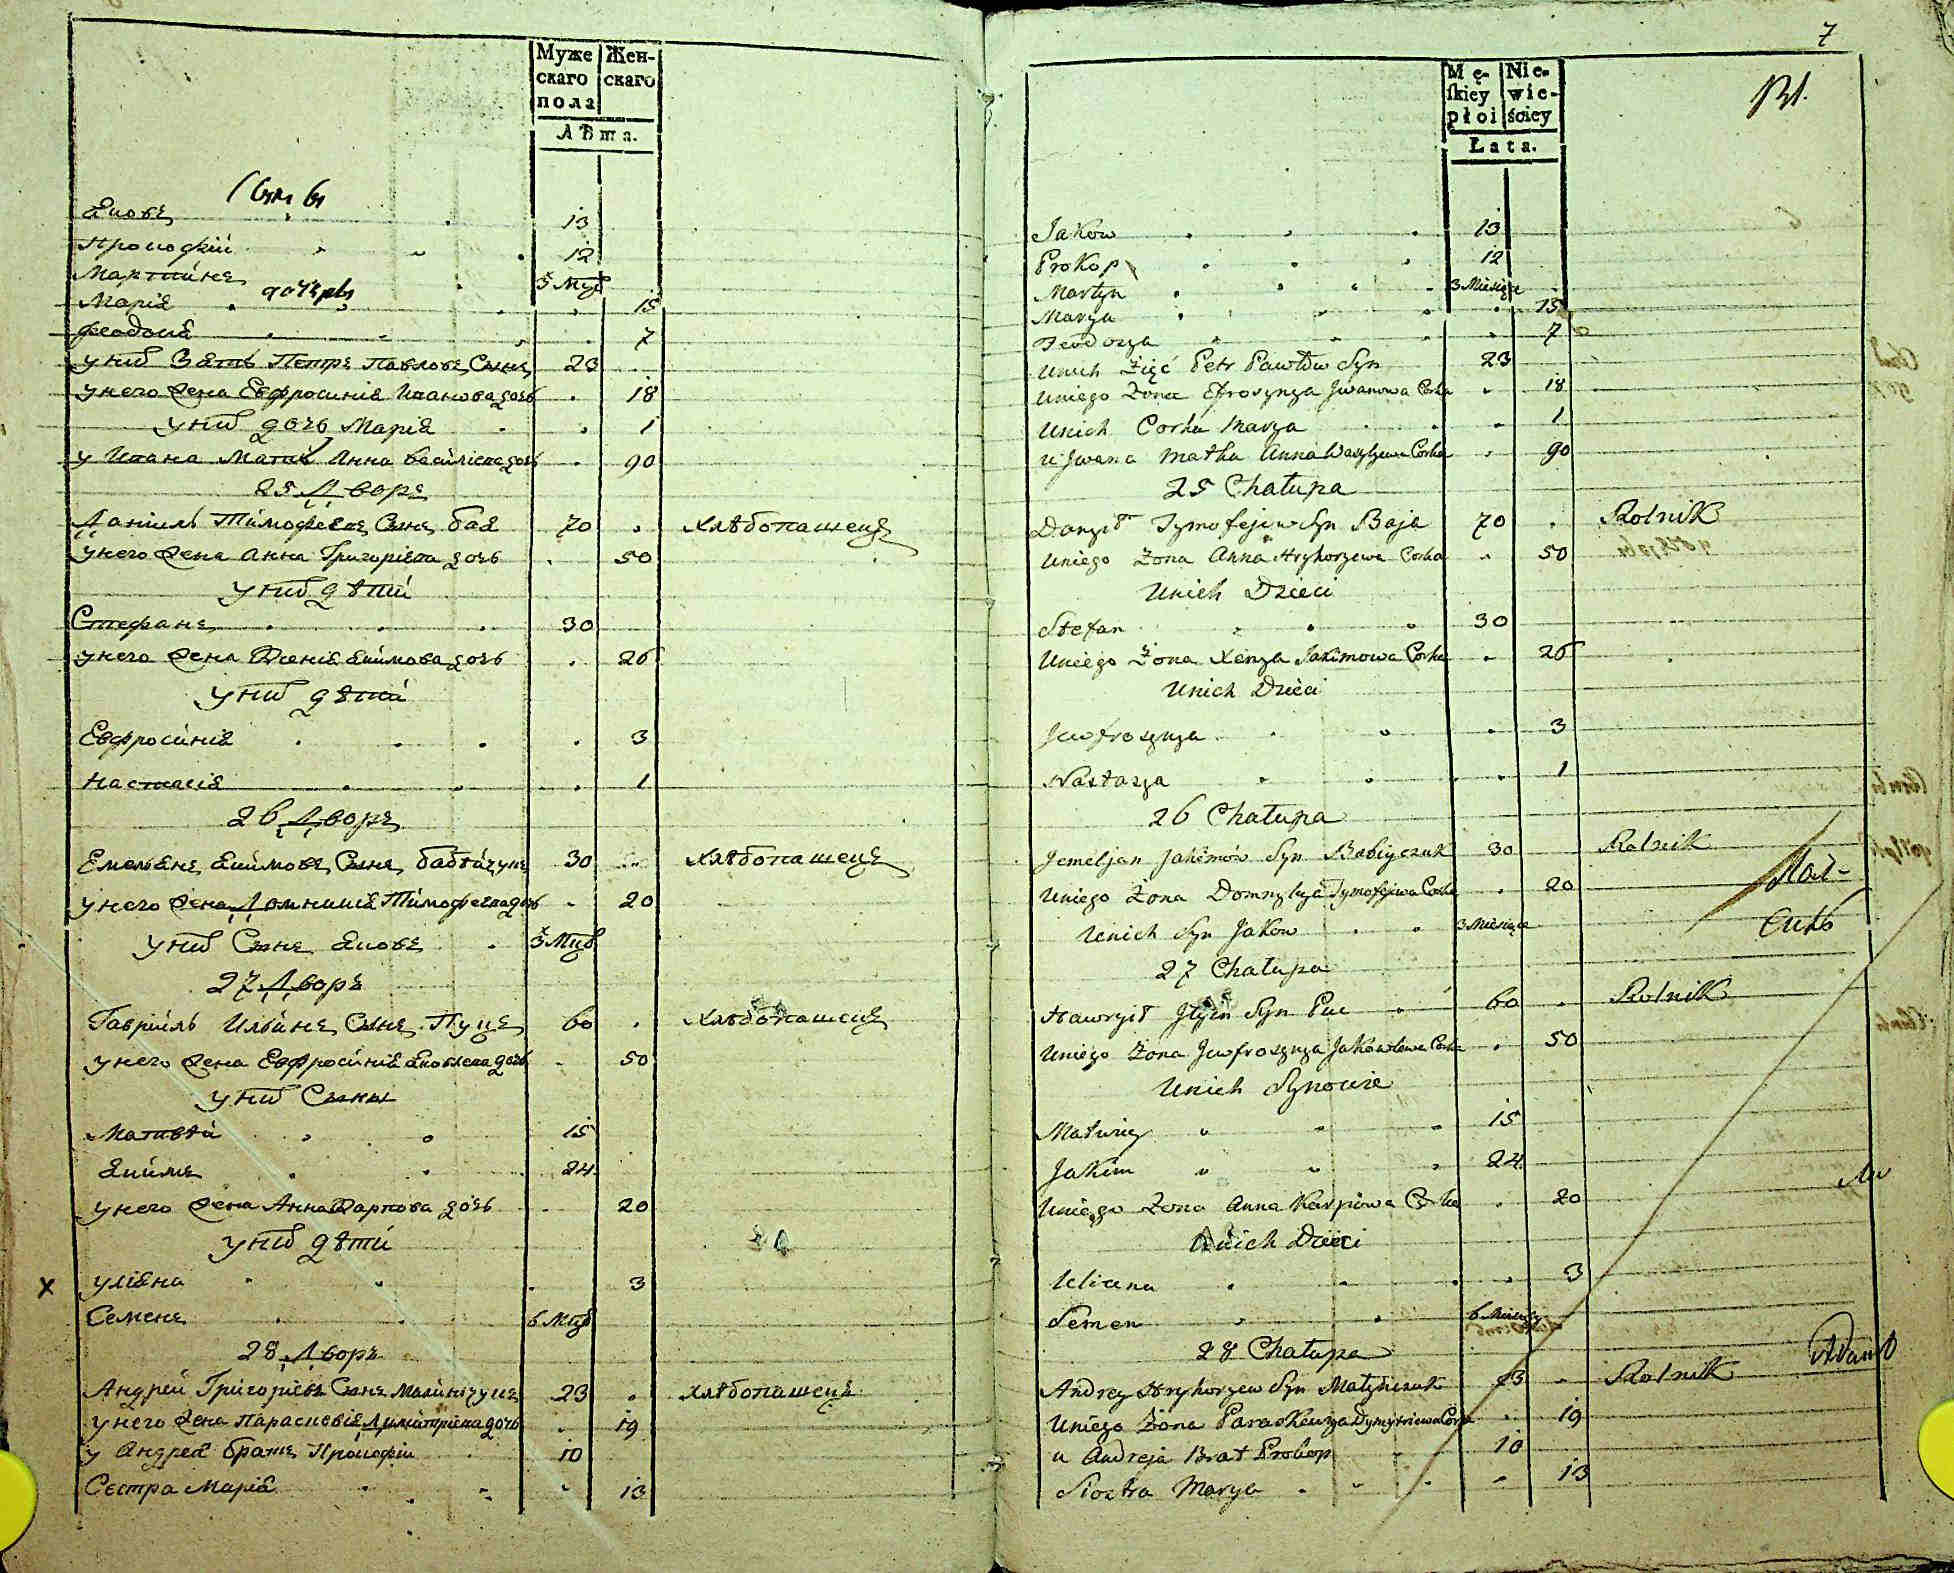 Муже
скаго
пола
Жен-
скаго
Лѣта.
Яковъ 13
Прокофій 12
Мартинъ 3 мцѣ
Марія 15
Феодосія 7
у нихъ Зять Петръ Павловъ Сынъ 23
у него жена Евфросинія Иванова дочь 18
у нихъ дочь Марія 1
у Ивана Мать Анна Василіева дочь 90
25 Дворъ
Даніилъ Тимофеевъ Сынъ Бая 70 Хлѣбопашецъ
у него жена Анна Григоріева дочь 50
у нихъ дѣти
Стефанъ 30
у него жена Ксенія Якимова дочь 26
у нихъ дѣти
Евфросинія 3
Настасія 1
26 Дворъ
Емельянъ Якимовъ Сынъ Бабѣйчукъ 30 Хлѣбопашецъ
у него жена Домникія Тимофеева дочь 20
у нихъ Сынъ Яковъ 3 мцѣ
27 Дворъ
Гавріилъ Ильинъ Сынъ Пуцъ 60 Хлѣбопашецъ
у него жена Евфросинія Яковлева дочь 50
у нихъ Сыны
Матвѣй 15
Якимъ 24
у него жена Анна Карпова дочь 20
у нихъ дѣти
х Уліяна 3
Семенъ 6 мцѣ
28 Дворъ
Андрей Григоріевъ Сынъ Малинчукъ 23 Хлѣбопашецъ
у него жена Параскевія Димитріева дочь 19
у Андрея братъ Прокофій 10
Сестра Марія 13
7
Mę-
ſkiey
płci
Nie-
wie-
ściey
Łata.
Jakow 13
Prokop 12
Martyn 3 Miesiące
Marya 15
Teodozya 7
Unich Zięć Petr Pawłow Syn 23
Uniego Żona Efrosynya Jwanowa Corka 18
Unich Corka Marya 1
u Jwana Matka Anna Wasylyewa Corka 90
25 Chałupa
Danyił Tymofejew Syn Baja 70 Rolnik
Uniego Żona Anna Hryhorzewa Corka 50
Unich Dzieci
Stefan 30
Uniego Żona Xenya Jakimowa Corka 26
Unich Dzieci
Jewfrosynya 3
Nastazya 1
26 Chałupa
Jemeljan Jakimów Syn Babiyczuk 30 Rolnik
Uniego Żona Domnykya Tymofejewa Corka 20
Unich Syn Jakow 3 Miesiące
27 Chałupa
Hawryił Jljin Syn Puc 60 Rolnik
Uniego Żona Jewfrosynya Jakowlewa Corka 50
Unich Synowie
Matwiey 15
Jakim 24
Uniego Żona Anna Karpowa Corka 20
Unich Dzieci
Uliana 3
Semen 6 Miesięcy
28 Chałupa
Andrey Hryhorzew Syn Małyńczuk 23 Rolnik
Uniego Żona Paraskewya Dymytriewa Corka 19
u Andreja Brat Prokop 10
Siostra Marya 13